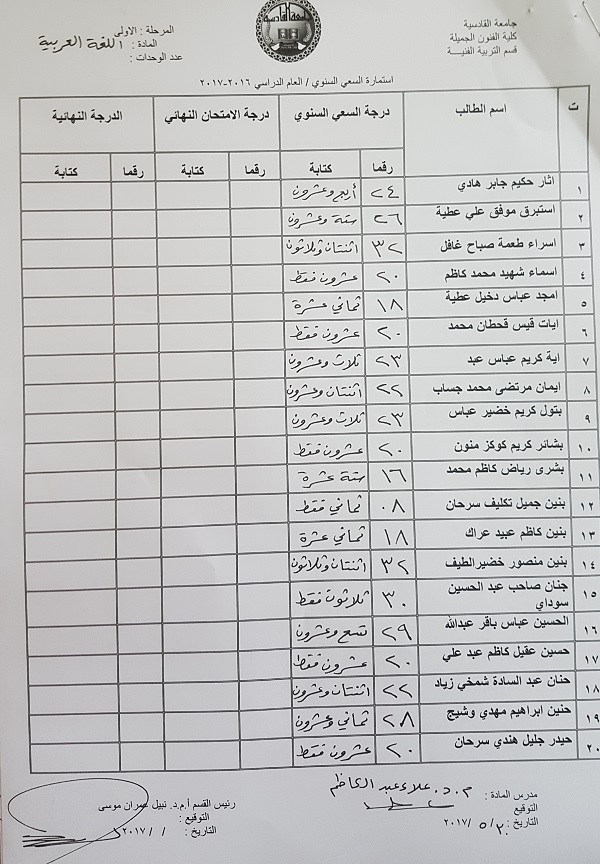 جامعة القادسية
كلية الفنون الجميلة
قسم التربية الفنية
المرحلة : الاولى
المادة : اللغة العربية
عدد الوحدات :
استمارة السعي السنوي / العام الدراسي ٢٠١٦-٢٠١٧
ت اسم الطالب درجة السعي السنوي درجة الامتحان النهائي الدرجة النهائية
رقما كتابة رقما كتابة رقما كتابة
١ اثار حكيم جابر هادي ٢٤ أربع وعشرون
٢ استبرق موفق علي عطية ٢٦ ستة وعشرون
٣ اسراء طعمة صباح غافل ٣٢ اثنتان وثلاثون
٤ اسماء شهيد محمد كاظم ٢٠ عشرون فقط
٥ امجد عباس دخيل عطية ١٨ ثماني عشرة
٦ ايات قيس قحطان محمد ٢٠ عشرون فقط
٧ اية كريم عباس عبد ٢٣ ثلاث وعشرون
٨ ايمان مرتضى محمد جساب ٢٢ اثنتان وعشرون
٩ بتول كريم خضير عباس ٢٣ ثلاث وعشرون
١٠ بشائر كريم كوكز منون ٢٠ عشرون فقط
١١ بشرى رياض كاظم محمد ١٦ ستة عشرة
١٢ بنين جميل تكليف سرحان ٠٨ ثماني فقط
١٣ بنين كاظم عبيد عراك ١٨ ثماني عشرة
١٤ بنين منصور خضيرالطيف ٣٢ اثنتان وثلاثون
١٥ جنان صاحب عبد الحسين ٣٠ ثلاثون فقط
سوداي
١٦ الحسين عباس باقر عبدالله ٢٩ تسع وعشرون
١٧ حسين عقيل كاظم عبد علي ٢٠ عشرون فقط
١٨ حنان عبد السادة شمخي زياد ٢٢ اثنتان وعشرون
١٩ حنين ابراهيم مهدي وشيج ٢٨ ثماني وعشرون
٢٠ حيدر جليل هندي سرحان ٢٠ عشرون فقط
مدرس المادة : م.د. علاء عبد الكاظم
التوقيع
التاريخ : ٢٠/٥/٢٠١٧
رئيس القسم أ.م.د. نبيل عمران موسى
التوقيع :
التاريخ : / /٢٠١٧